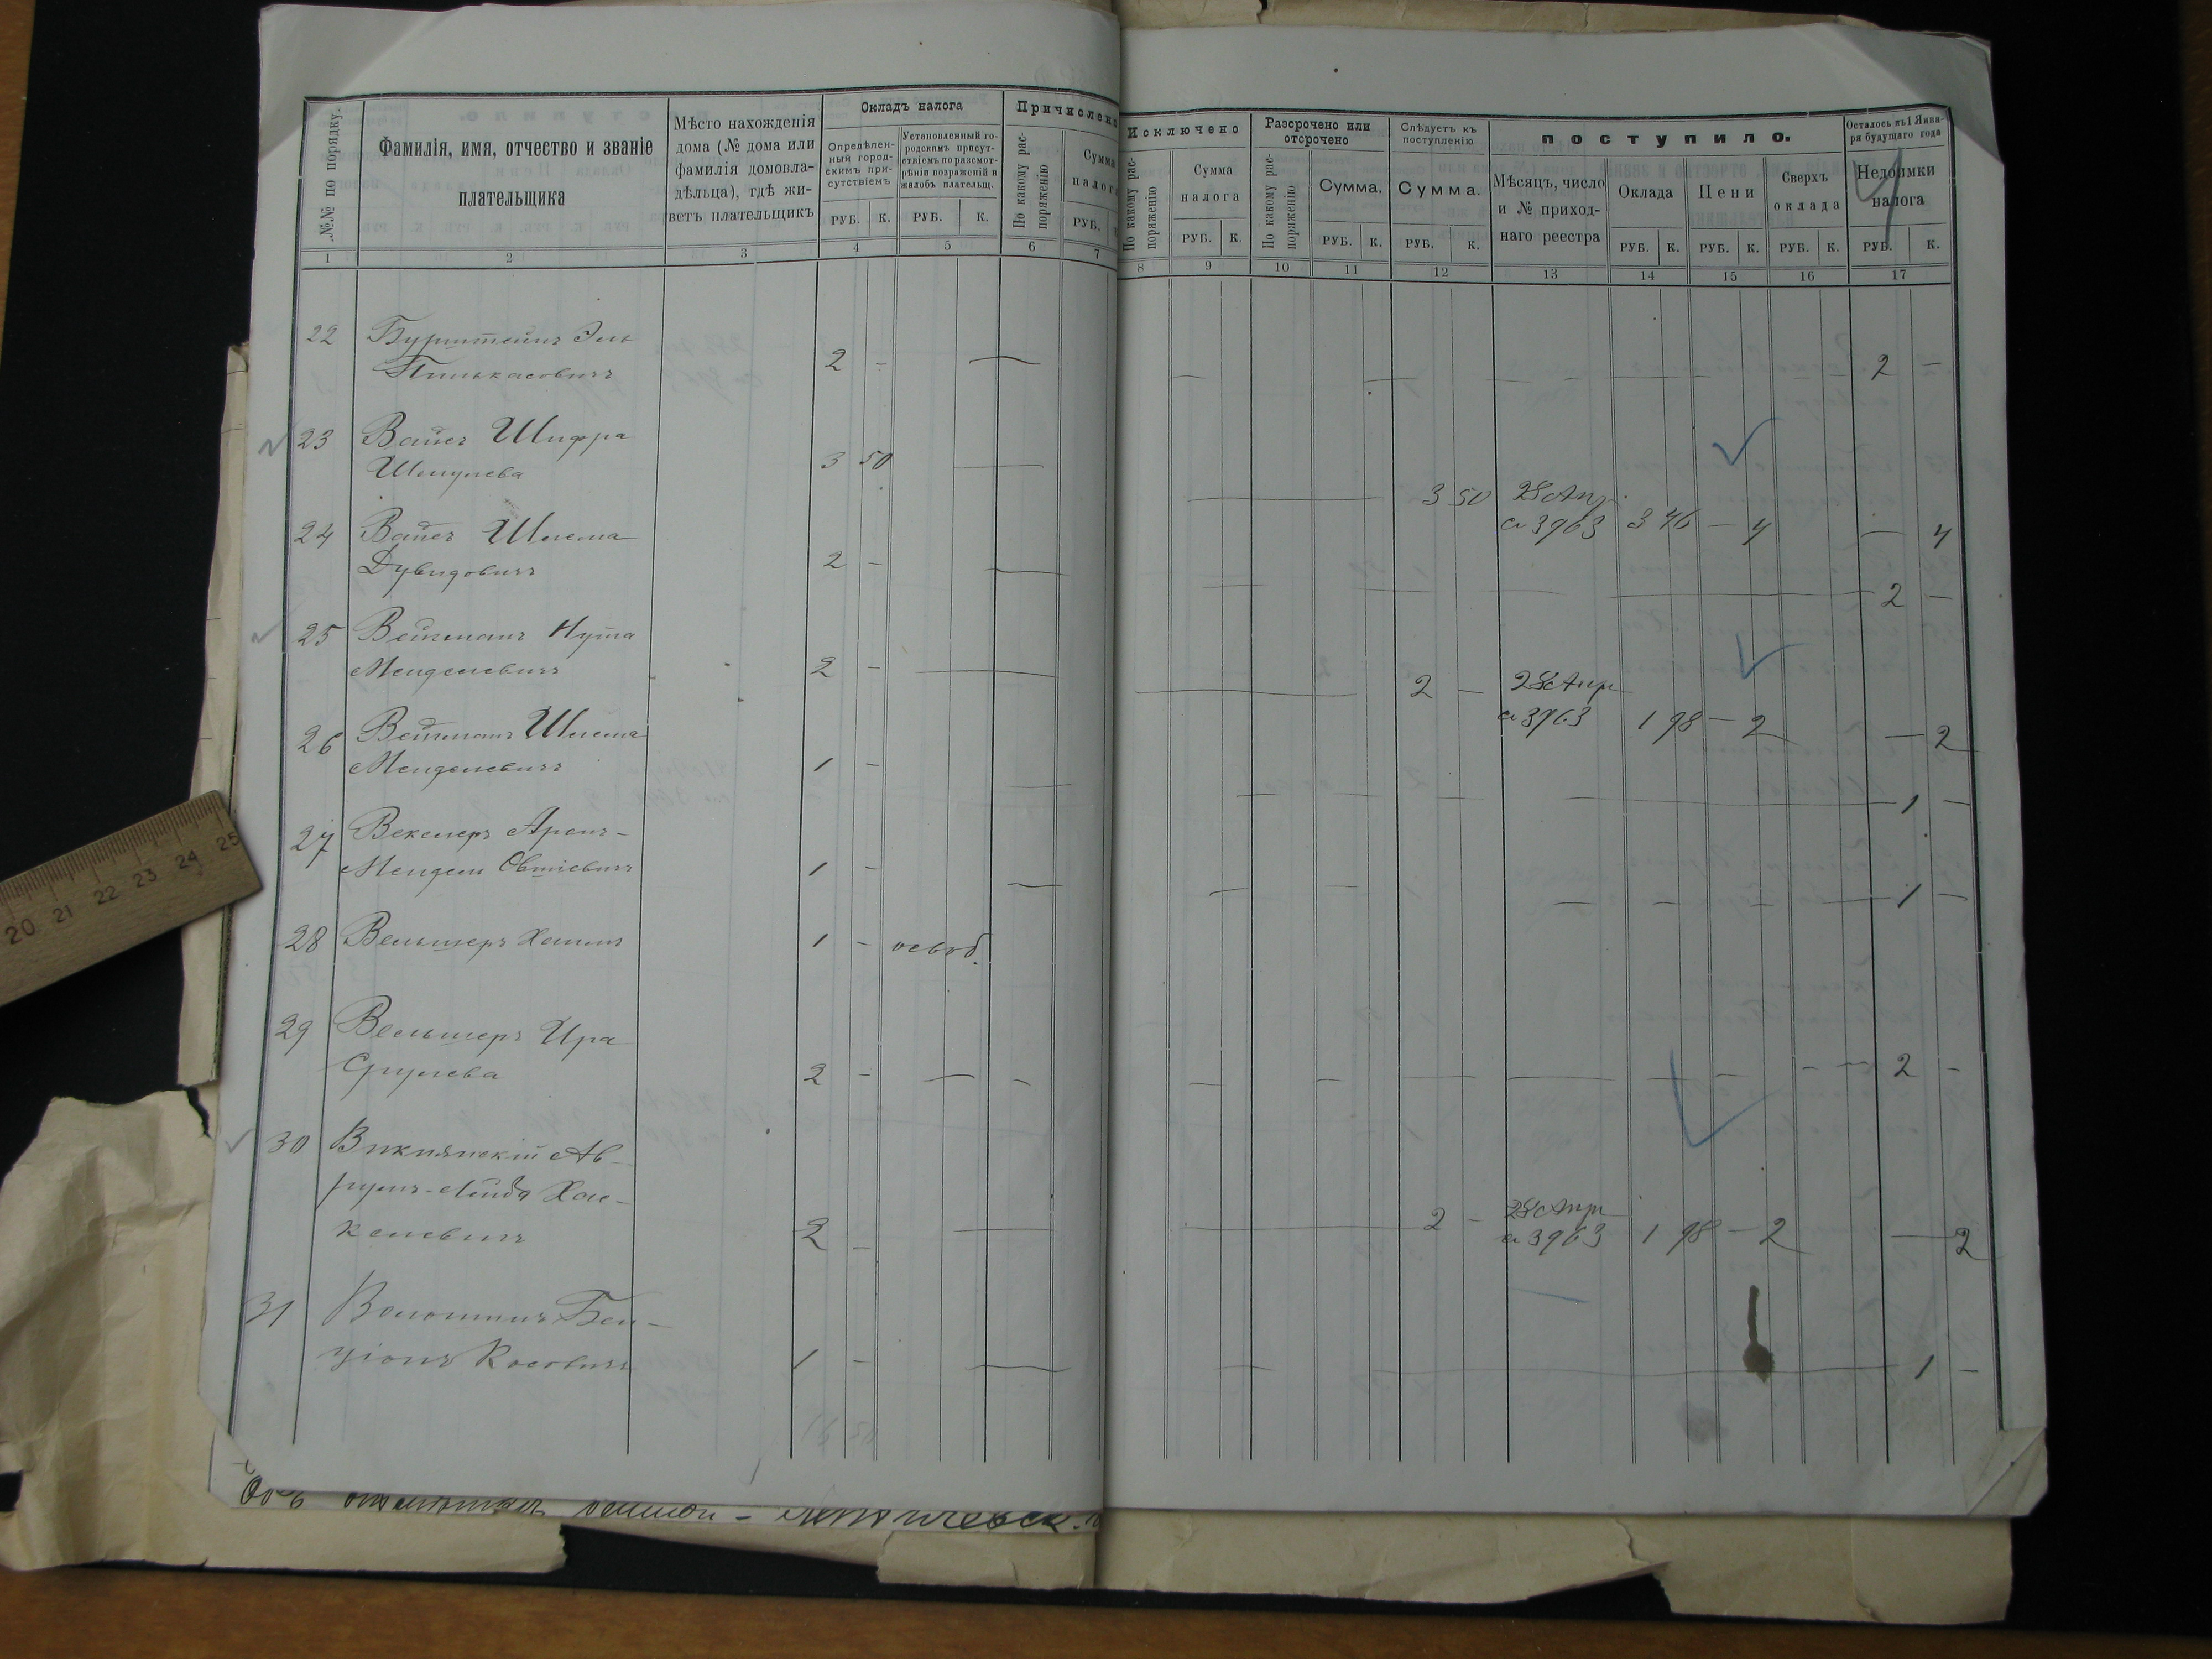 №№ по порядку.
Фамилія, имя, отчество и званіе
плательщика
Мѣсто нахожденія
дома (№ дома или
фамилія домовла-
дѣльца), гдѣ жи-
ветъ плательщикъ
Окладъ налога
Опредѣлен-
ный город-
скимъ при-
сутствіемъ
Установленный го-
родскимъ присут-
ствіемъ по разсмот-
рѣніи возраженій и
жалобъ плательщ.
РУБ. К. РУБ. К.
Причислено
По какому рас-
поряженію
Сумма
налога
РУБ.
Исключено
По какому рас-
поряженію
Сумма
налога
РУБ. К.
Разсрочено или
отсрочено
По какому рас-
поряженію
Сумма.
РУБ. К.
Слѣдуетъ къ
поступленію
Сумма.
РУБ. К.
поступило.
Мѣсяцъ, число
и № приход-
наго реестра
Оклада
РУБ. К.
Пени
РУБ. К.
Сверхъ
оклада
РУБ. К.
Осталось къ 1 Янва-
ря будущаго года
Недоимки
налога
РУБ. К.
1 2 3 4 5 6 7 8 9 10 11 12 13 14 15 16 17
22 Бурштейнъ Эль
Пинькасовичъ 2 — — — — — — — — 2 —
23 Вайсъ Шифра
Шмулева 3 50 — — 3 50 28 Апр
3963 3 46 — 4 — 4
24 Вайсъ Шлема
Дувидовичъ 2 — — — — — 2 —
25 Вейцманъ Нута
Менделевичъ 2 — — — 2 — 28 Апр
3963 1 98 — 2 — 2
26 Вейцманъ Шлема
Менделевичъ 1 — — — — — — — 1 —
27 Векслеръ Аронъ-
Мендель Овшіевичъ 1 — — — — — — — 1 —
28 Вельшеръ Хаимъ 1 — освоб.
29 Вельшеръ Ира
Срулева 2 — — — — — — — 2 —
30 Викнянскій Ав-
румъ-Лейба Хас-
келевичъ 2 — — — 2 — 28 Апр
3963 1 98 — 2 — 2
31 Волошинъ Бен-
ціонъ Іосовичъ 1 — — — — 1 —
16 50
20 21 22 23 24 25